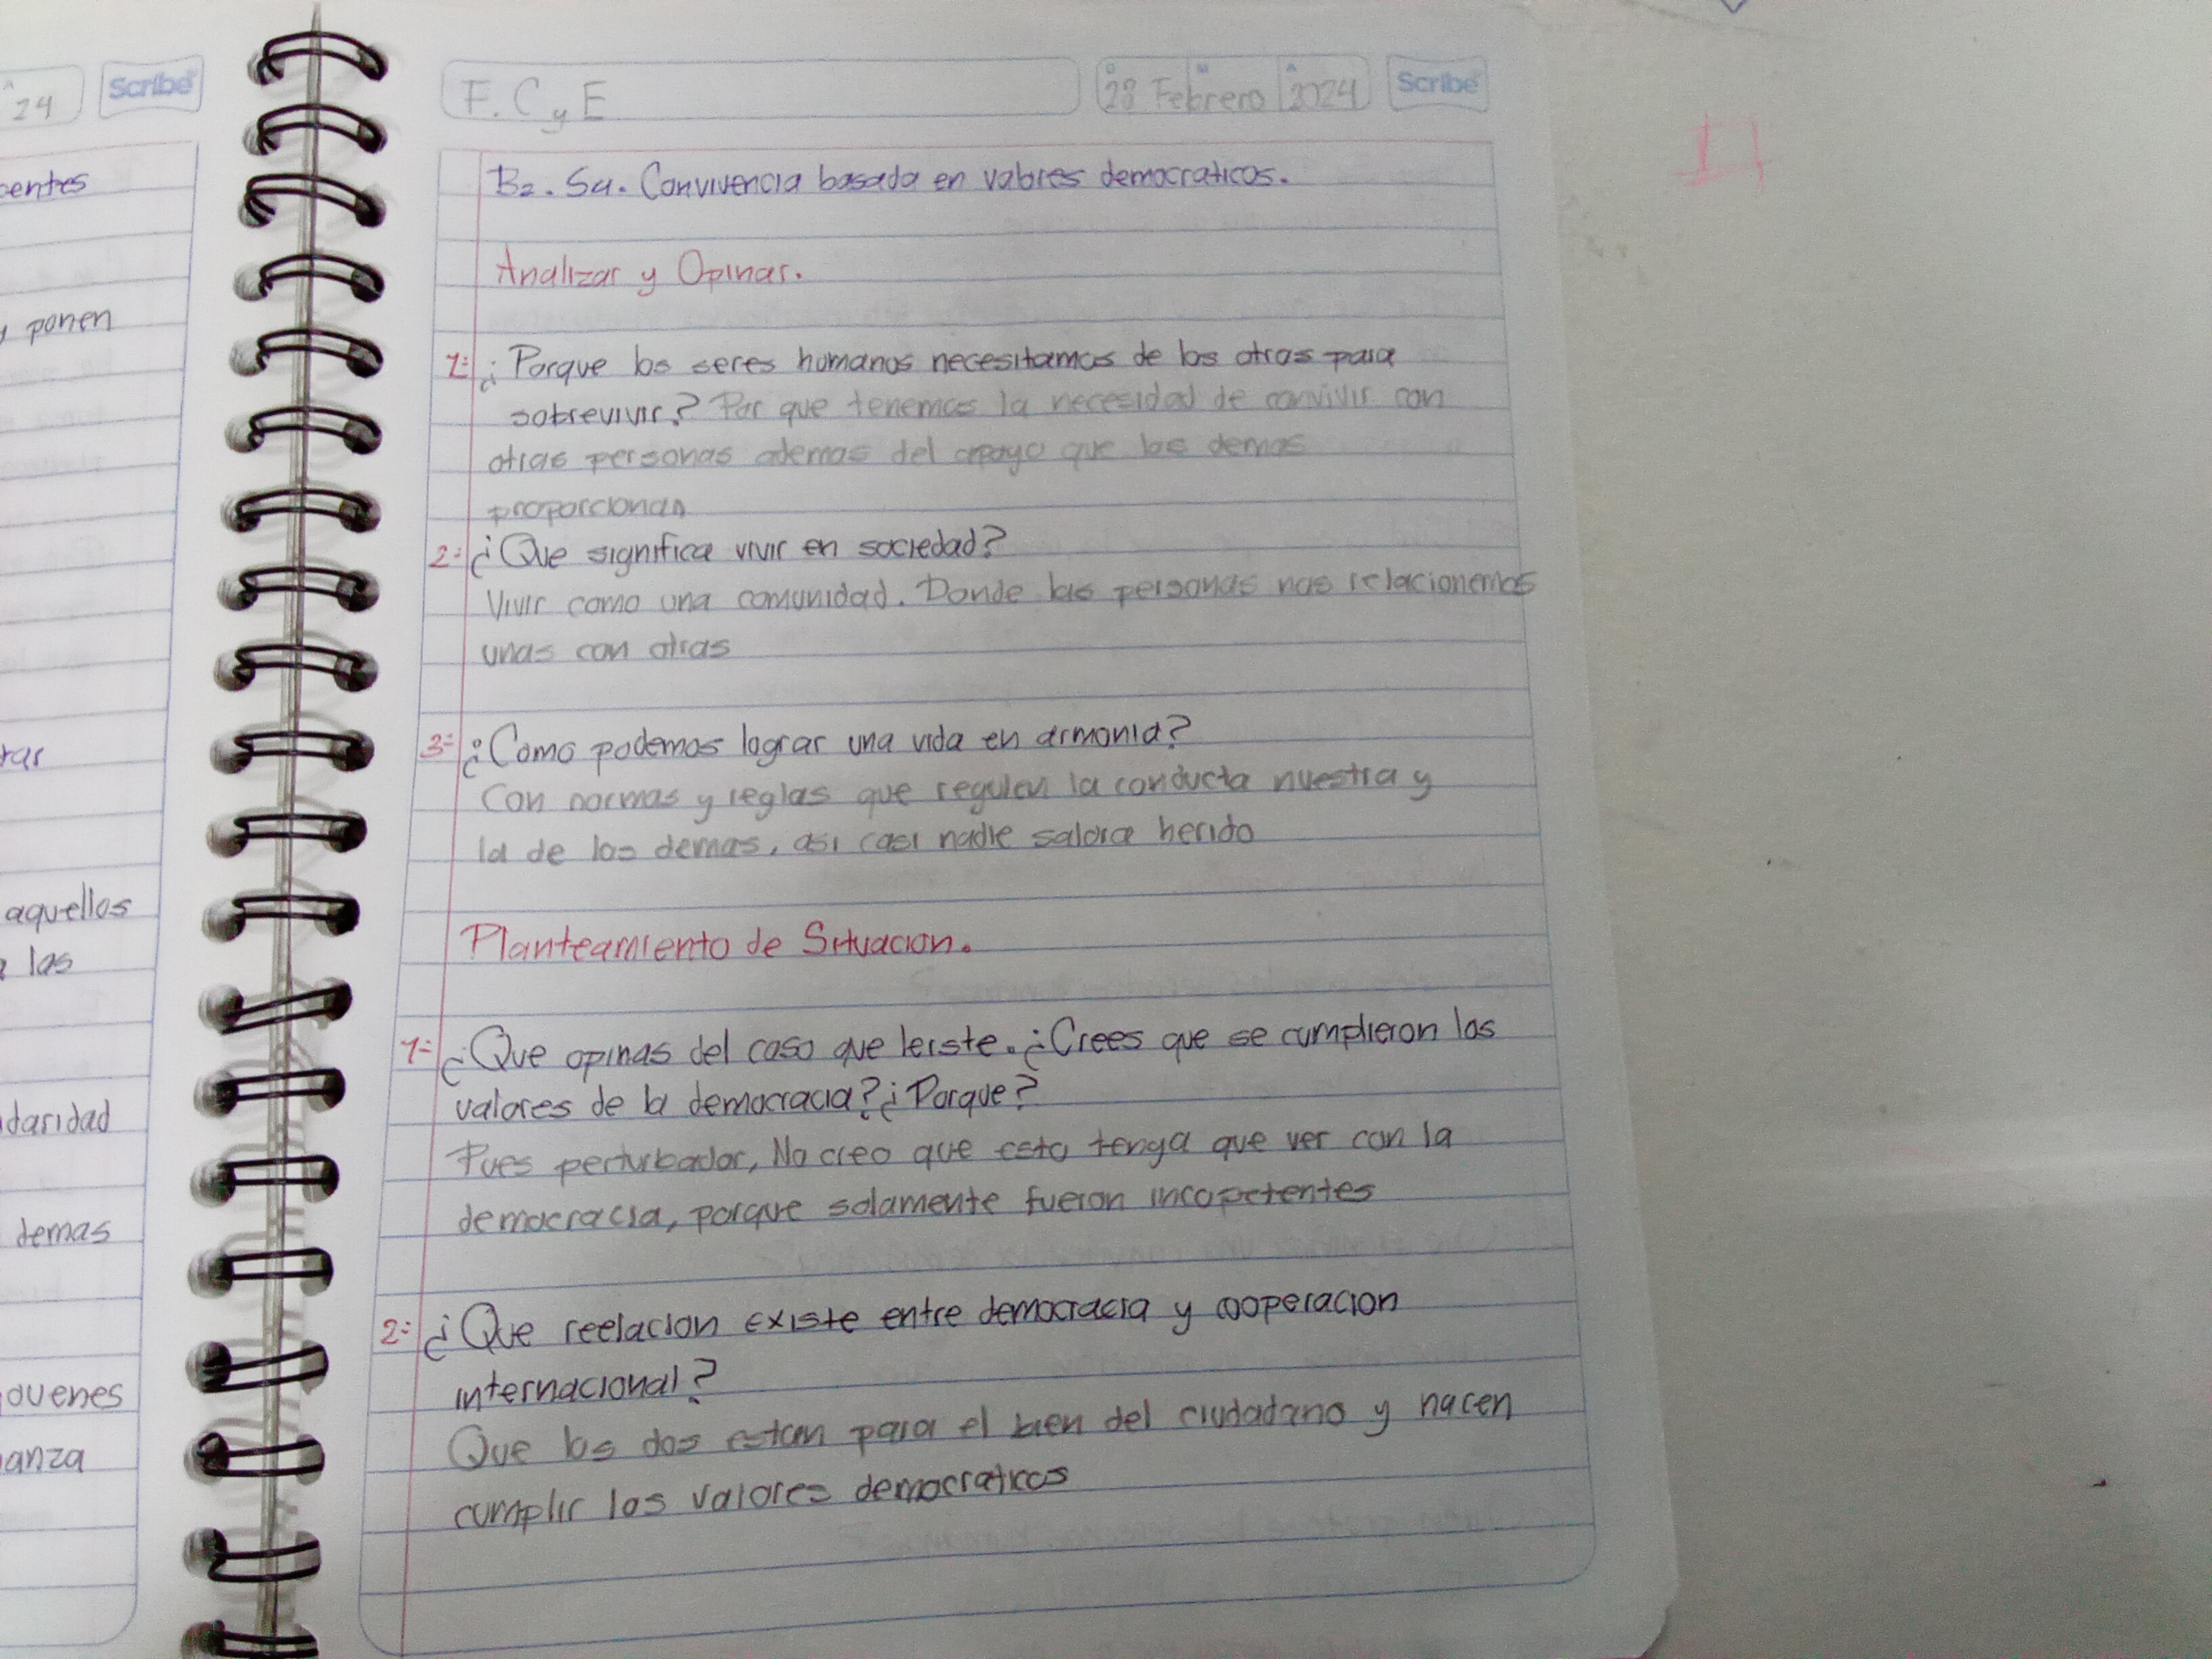 24
Scribe
entes
y ponen
rar
aquellos
las
daridad
demas
ovenes
anza
F. C y E
28 Febrero 2024
Scribe
B2. S4. Convivencia basada en valores democraticos.
Analizar y Opinar.
1= ¿Porque los seres humanos necesitamos de los otros para
sobrevivir? Por que tenemos la necesidad de convivir con
otras personas ademas del apoyo que los demas
proporcionan
2= ¿Que significa vivir en sociedad?
Vivir como una comunidad. Donde las personas nos relacionemos
unas con otras
3= ¿Como podemos lograr una vida en armonia?
Con normas y reglas que regulen la conducta nuestra y
la de los demas, asi casi nadie saldra herido
Planteamiento de Situacion.
1= ¿Que opinas del caso que leiste. ¿Crees que se cumplieron los
valores de la democracia? ¿Porque?
Pues perturbador, No creo que esto tenga que ver con la
democracia, porque solamente fueron incopetentes
2= ¿Que reelacion existe entre democracia y cooperacion
internacional?
Que los dos estan para el bien del ciudadano y hacen
cumplir los valores democraticos